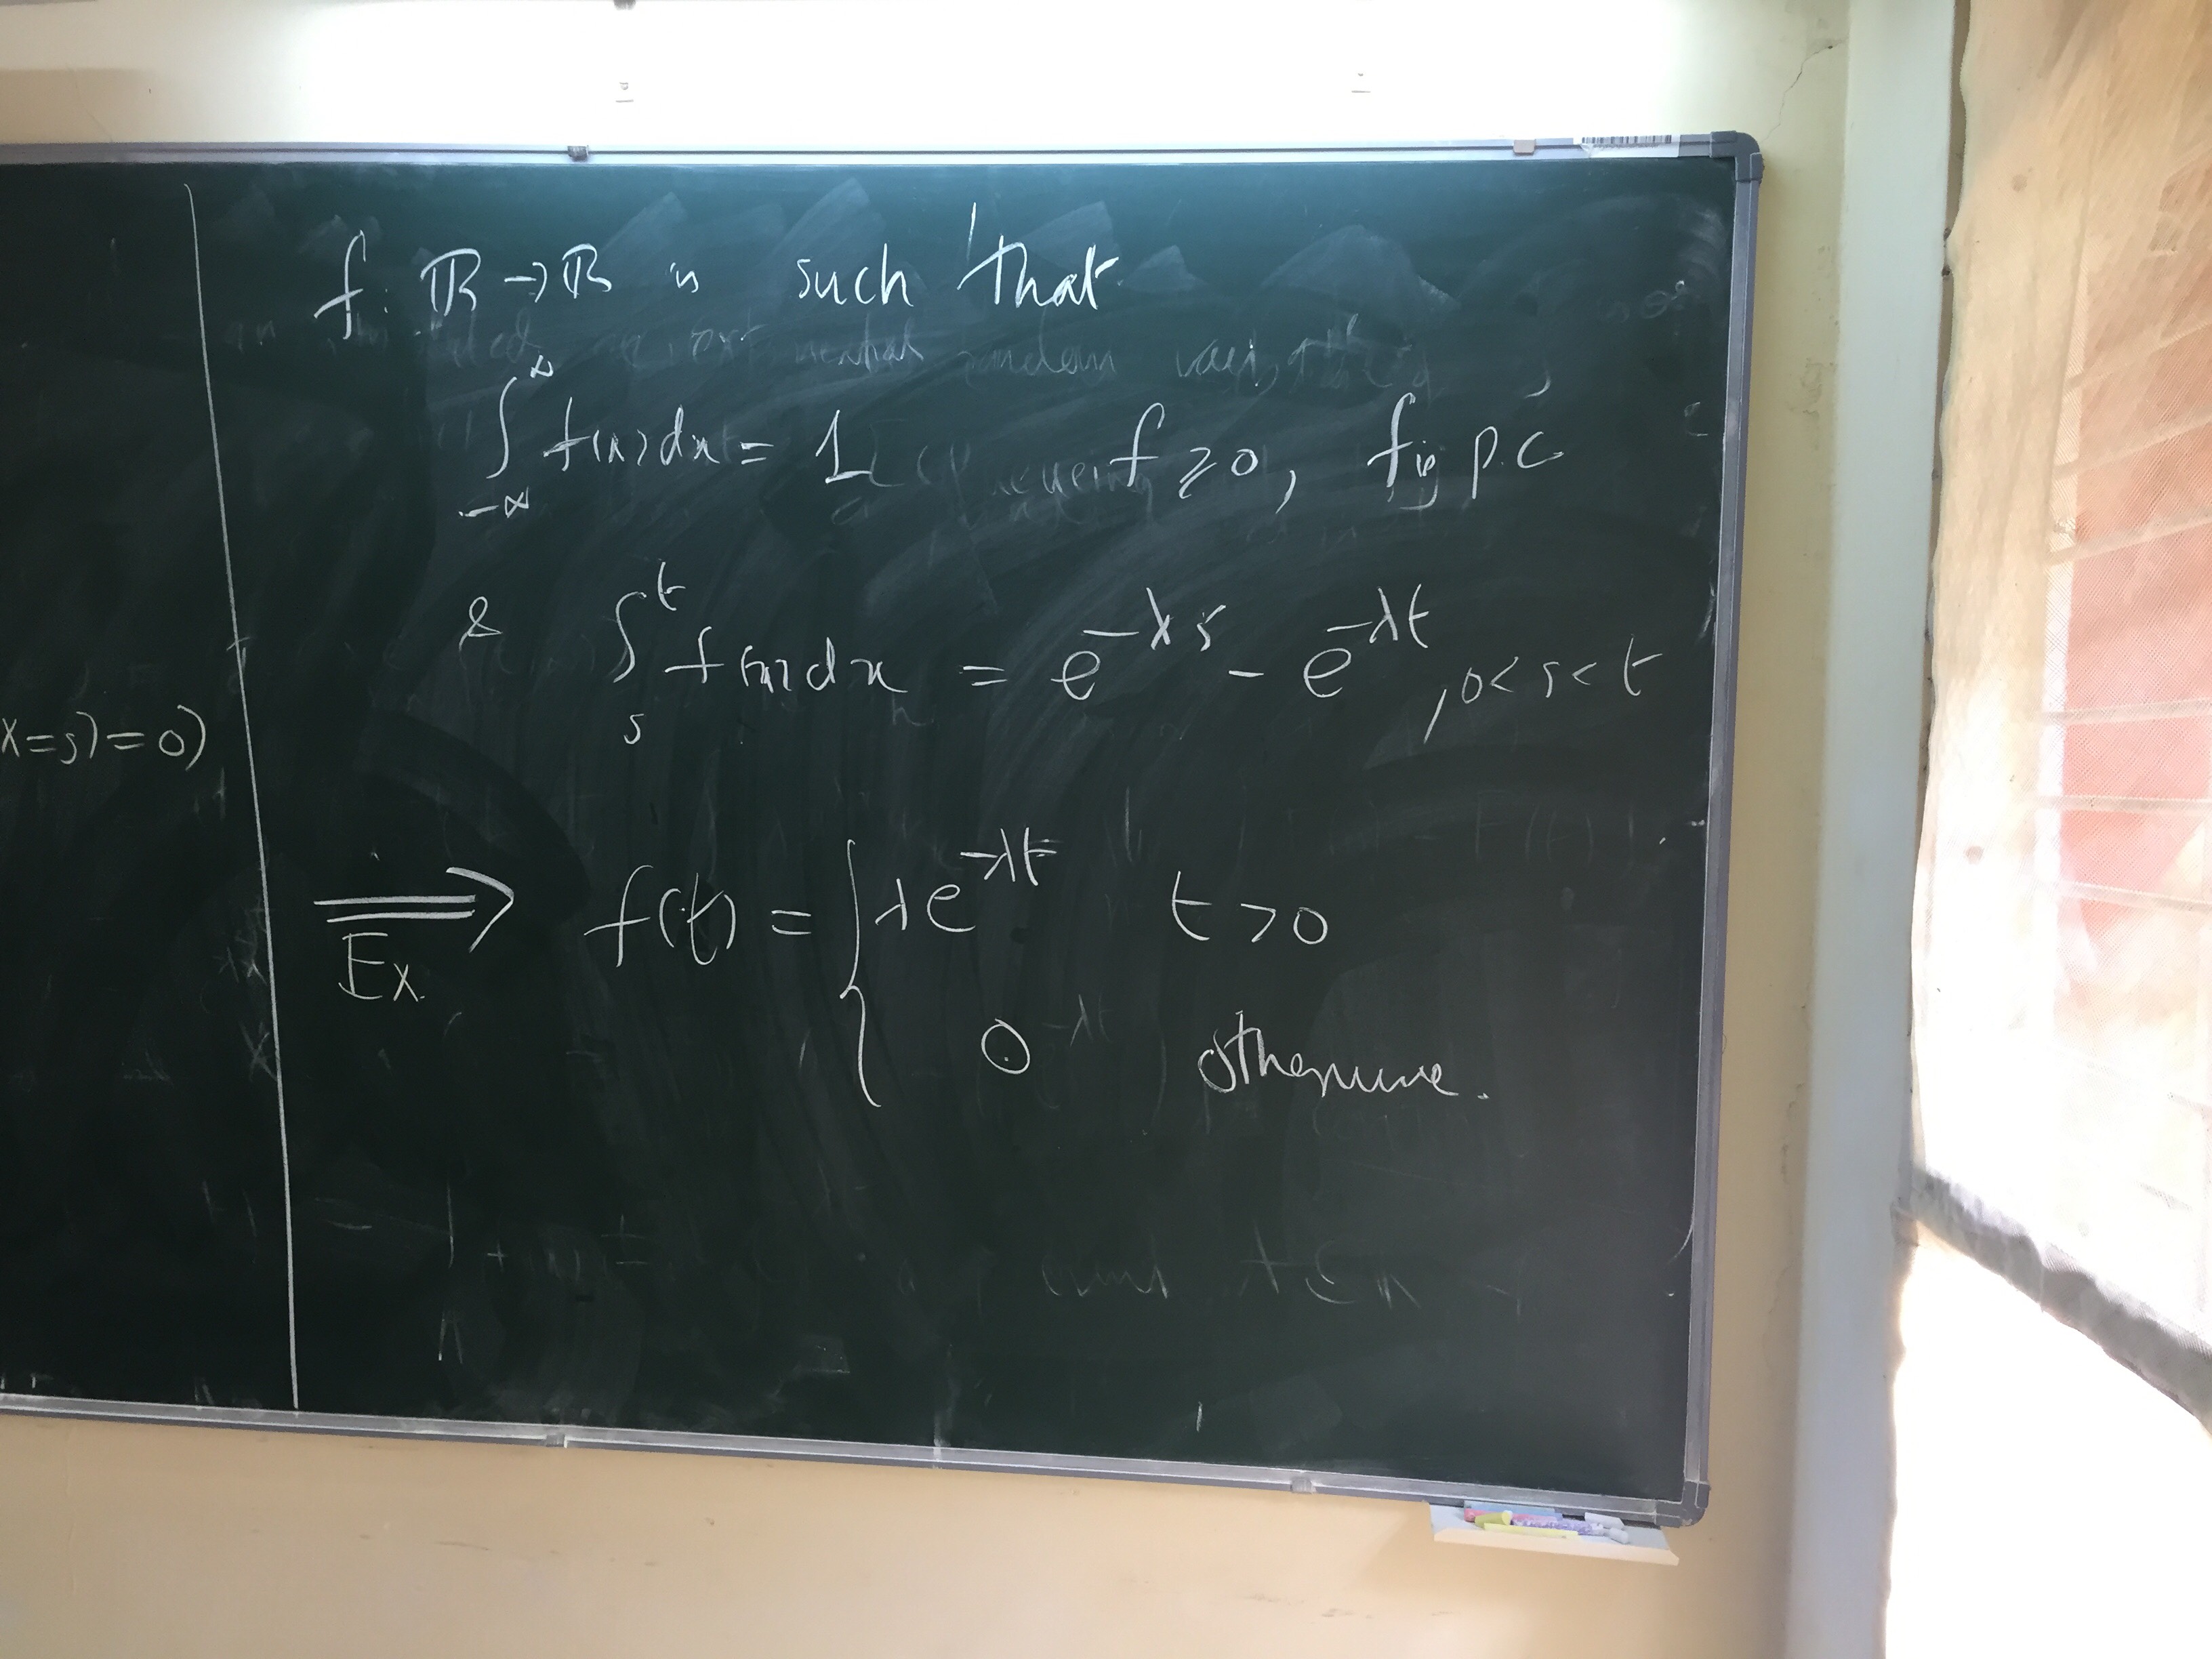 f: ℝ → ℝ is such that
∫_{-∞}^{∞} f(x) dx = 1 f ≥ 0, f is p.c
& ∫_{s}^{t} f(x) dx = e^{-λs} - e^{-λt}, 0 < s < t
X = s) = 0)
⟹ Ex. f(t) = { λe^{-λt} t > 0
0 otherwise.